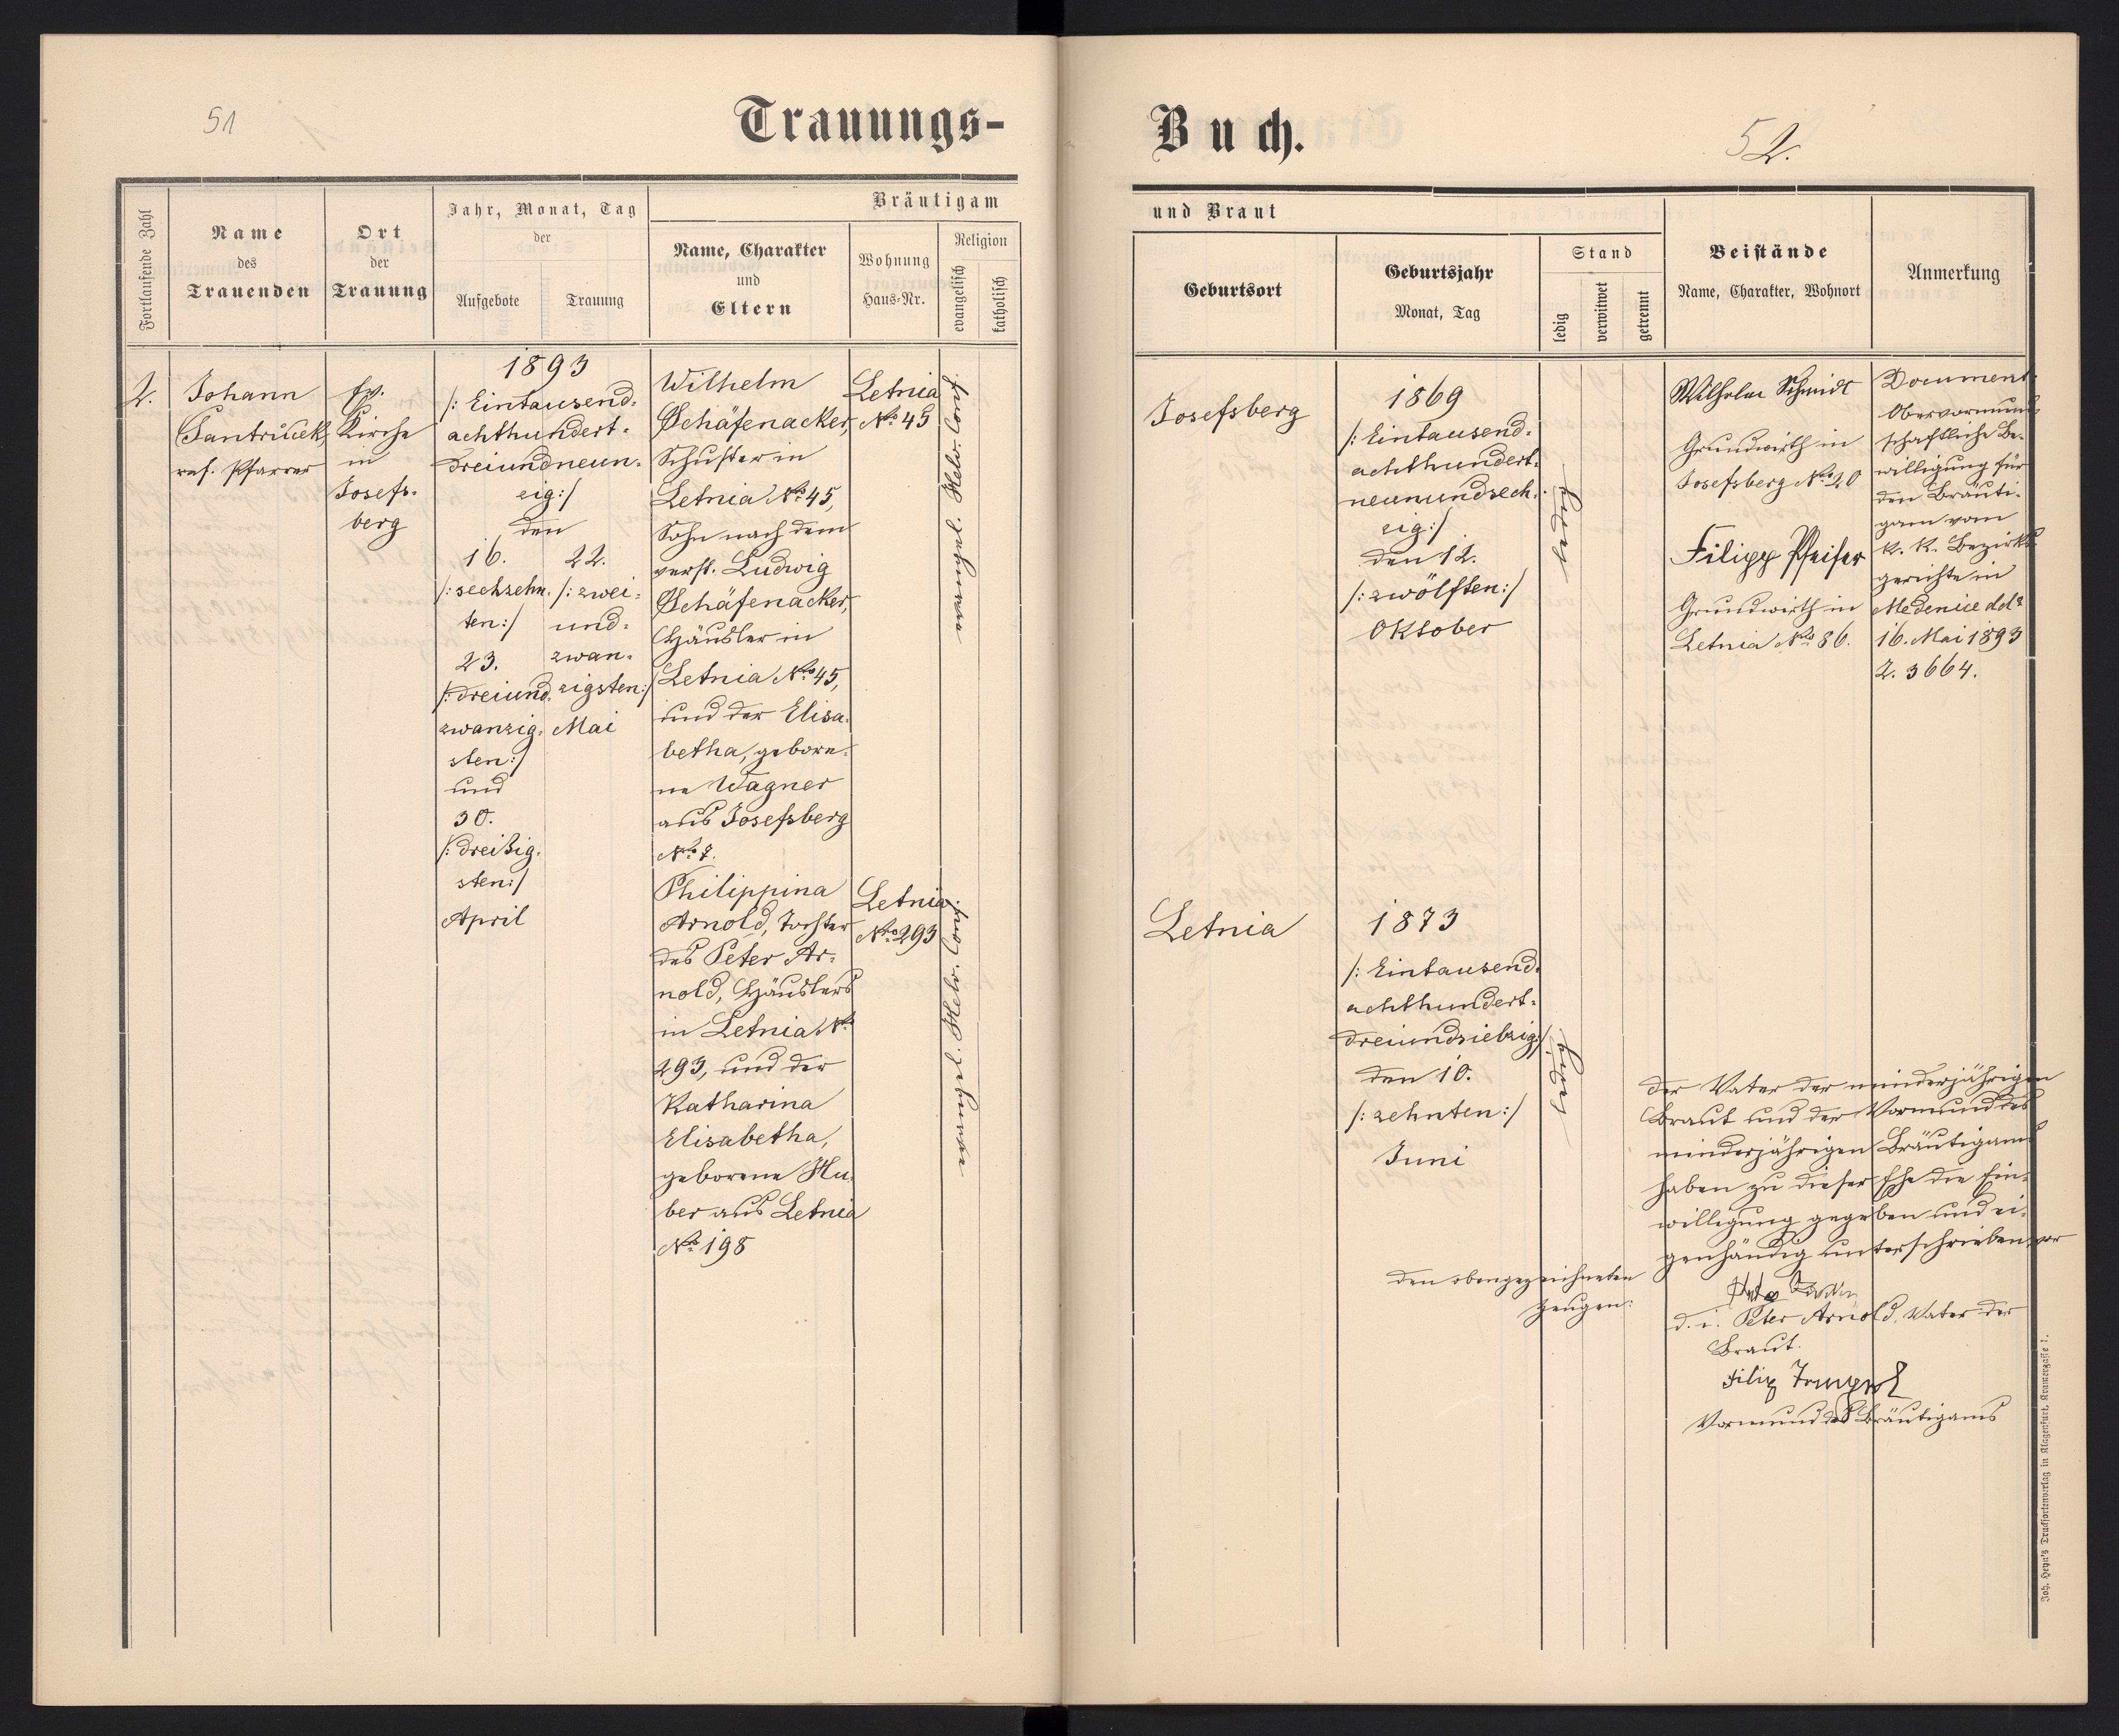 51
Trauungs-
Buch.
52.
Fortlaufende Zahl
Name
des
Trauenden
Ort
der
Trauung
Jahr, Monat, Tag
der
Aufgebote
Trauung
Bräutigam
Name, Charakter
und
Eltern
Wohnung
Haus-Nr.
Religion
evangelisch
katholisch
und Braut
Geburtsort
Geburtsjahr
Monat, Tag
Stand
ledig
verwitwet
getrennt
Beistände
Name, Charakter, Wohnort
Anmerkung
2.
Johann
ref. Pfarrer
ev.
Kirche
in
Josefs-
berg
1893
/: Eintausend-
achthundert-
dreiundneun-
zig:/
den
16.
/: sechzehn-
ten:/
23.
/: dreiund-
zwanzig-
sten:/
und
30.
/: dreißig-
sten:/
April
22.
/: zwei-
und-
zwan-
zigsten:/
Mai
Wilhelm
Schäfenacker,
Schuster in
Letnia No 45,
Sohn nach dem
verst. Ludwig
Schäfenacker,
Häusler in
Letnia No 45,
und der Elisa-
betha, gebore-
ne Wagner
aus Josefsberg
No 7.
Letnia
No 45
evangel. Helv. Conf.
Philippina
Arnold, Tochter
des Peter Ar-
nold, Häuslers
in Letnia No
293, und der
Katharina
Elisabetha,
geborene Hu-
ber aus Letnia
No 198
Letnia
No 293
evangel. Helv. Conf.
Josefsberg
1869
/: Eintausend-
achthundert-
neunundsech-
zig:/
den 12.
/: zwölften:/
Oktober
ledig
Wilhelm Schmidt
Grundwirth in
Josefsberg No 20
Filipp Pfeifer
Grundwirth in
Letnia No 86.
Document:
Obervormund-
schaftliche Be-
willigung für
den Bräuti-
gam vom
k. k. Bezirks-
gerichte in
Medenice ddo
16. Mai 1893
Z. 3664.
Letnia
1873
/: Eintausend-
achthundert-
dreiundsiebzig:/
den 10.
/: zehnten:/
Juni
ledig
Der Vater der minderjährigen
Braut und der Vormund des
minderjährigen Bräutigams
haben zu dieser Ehe die Ein-
willigung gegeben und ei-
genhändig unterschrieben vor
den obengezeichneten
Zeugen:
d. i. Peter Arnold, Vater der
Braut.
Filip
Vormund des Bräutigams
Joh. Heyn's Drucksortenverlag in Klagenfurt, Kramergasse 7.